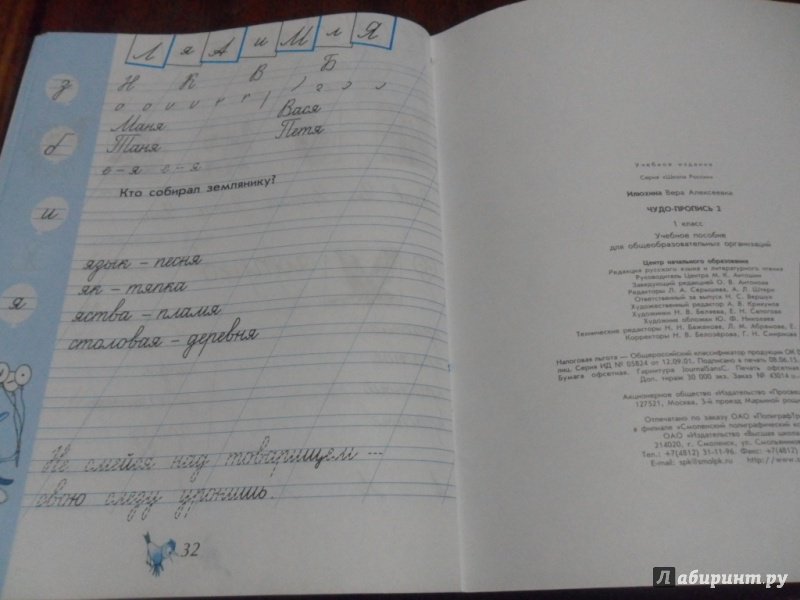 Л я А и М л Я
з
Н К В Б
Маня Вася
б
Таня Петя
о – я е – я
Кто собирал землянику?
и
язык – песня
я
як – тяпка
яства – пламя
столовая – деревня
Не смейся над товарищем ---
свою слезу уронишь.
32
Учебное издание
Серия «Школа России»
Илюхина Вера Алексеевна
ЧУДО-ПРОПИСЬ 2
1 класс
Учебное пособие
для общеобразовательных организаций
Центр начального образования
Редакция русского языка и литературного чтения
Руководитель Центра М. К. Антошин
Заведующий редакцией О. В. Антонова
Редакторы Л. А. Серышева, А. Л. Штерн
Ответственный за выпуск Н. С. Вершук
Художественный редактор А. В. Крикунов
Художники Н. В. Беляева, Е. Н. Сапогова
Художник обложки Ю. Ф. Николаев
Технические редакторы Н. Н. Бажанова, Л. М. Абрамова, Е.
Корректоры Н. В. Белозёрова, Г. Н. Смирнова
Налоговая льгота — Общероссийский классификатор продукции ОК
лиц. Серия ИД № 05824 от 12.09.01. Подписано в печать 08.06.15.
Бумага офсетная. Гарнитура JournalSansC. Печать офсетная
Доп. тираж 30 000 экз. Заказ № 43014
Акционерное общество «Издательство «Просве
127521, Москва, 3-й проезд Марьиной рощи
Отпечатано по заказу ОАО «ПолиграфТр
в филиале «Смоленский полиграфический к
ОАО «Издательство «Высшая школ
214020, г. Смоленск, ул. Смольянинов
Тел.: +7(4812) 31-11-96. Факс: +7(4812)
E-mail: spk@smolpk.ru http://www.s
Лабиринт.ру